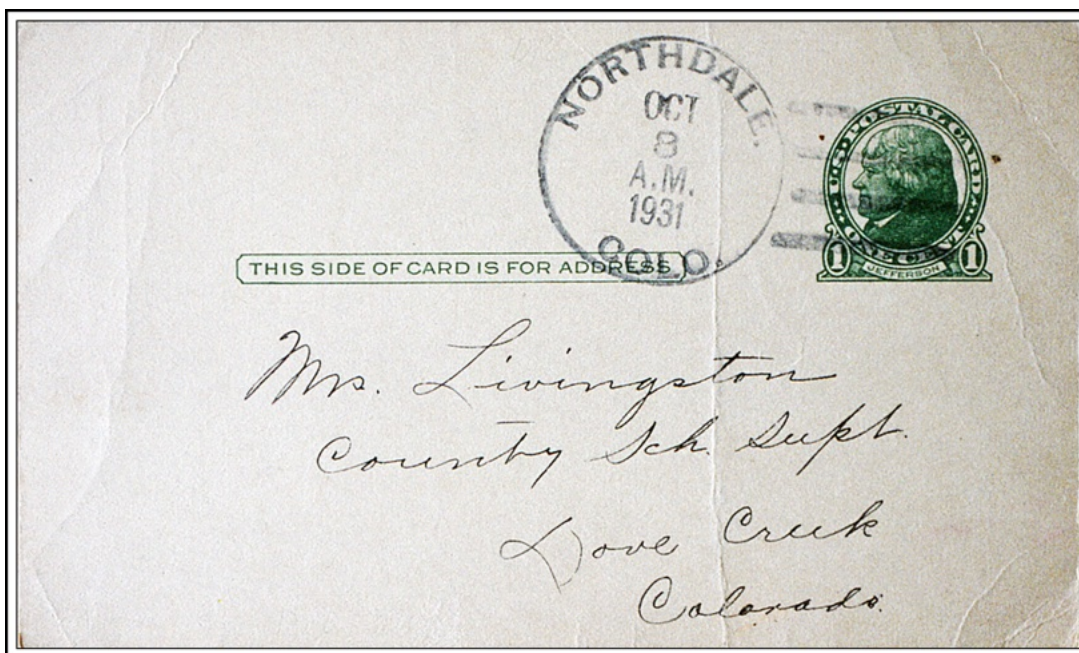 NORTHDALE,
OCT
8
A.M.
1931
COLO.
U.S. POSTAL CARD
ONE CENT
1 JEFFERSON 1
THIS SIDE OF CARD IS FOR ADDRESS
Mrs. Livingston
County Sch. Supt.
Dove Creek
Colorado.